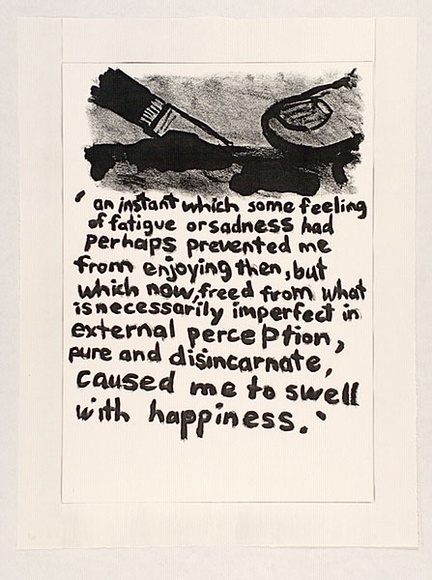 ' an instant which some feeling
of fatigue or sadness had
perhaps prevented me
from enjoying then, but
which now, freed from what
is necessarily imperfect in
external perception,
pure and disincarnate,
caused me to swell
with happiness. '